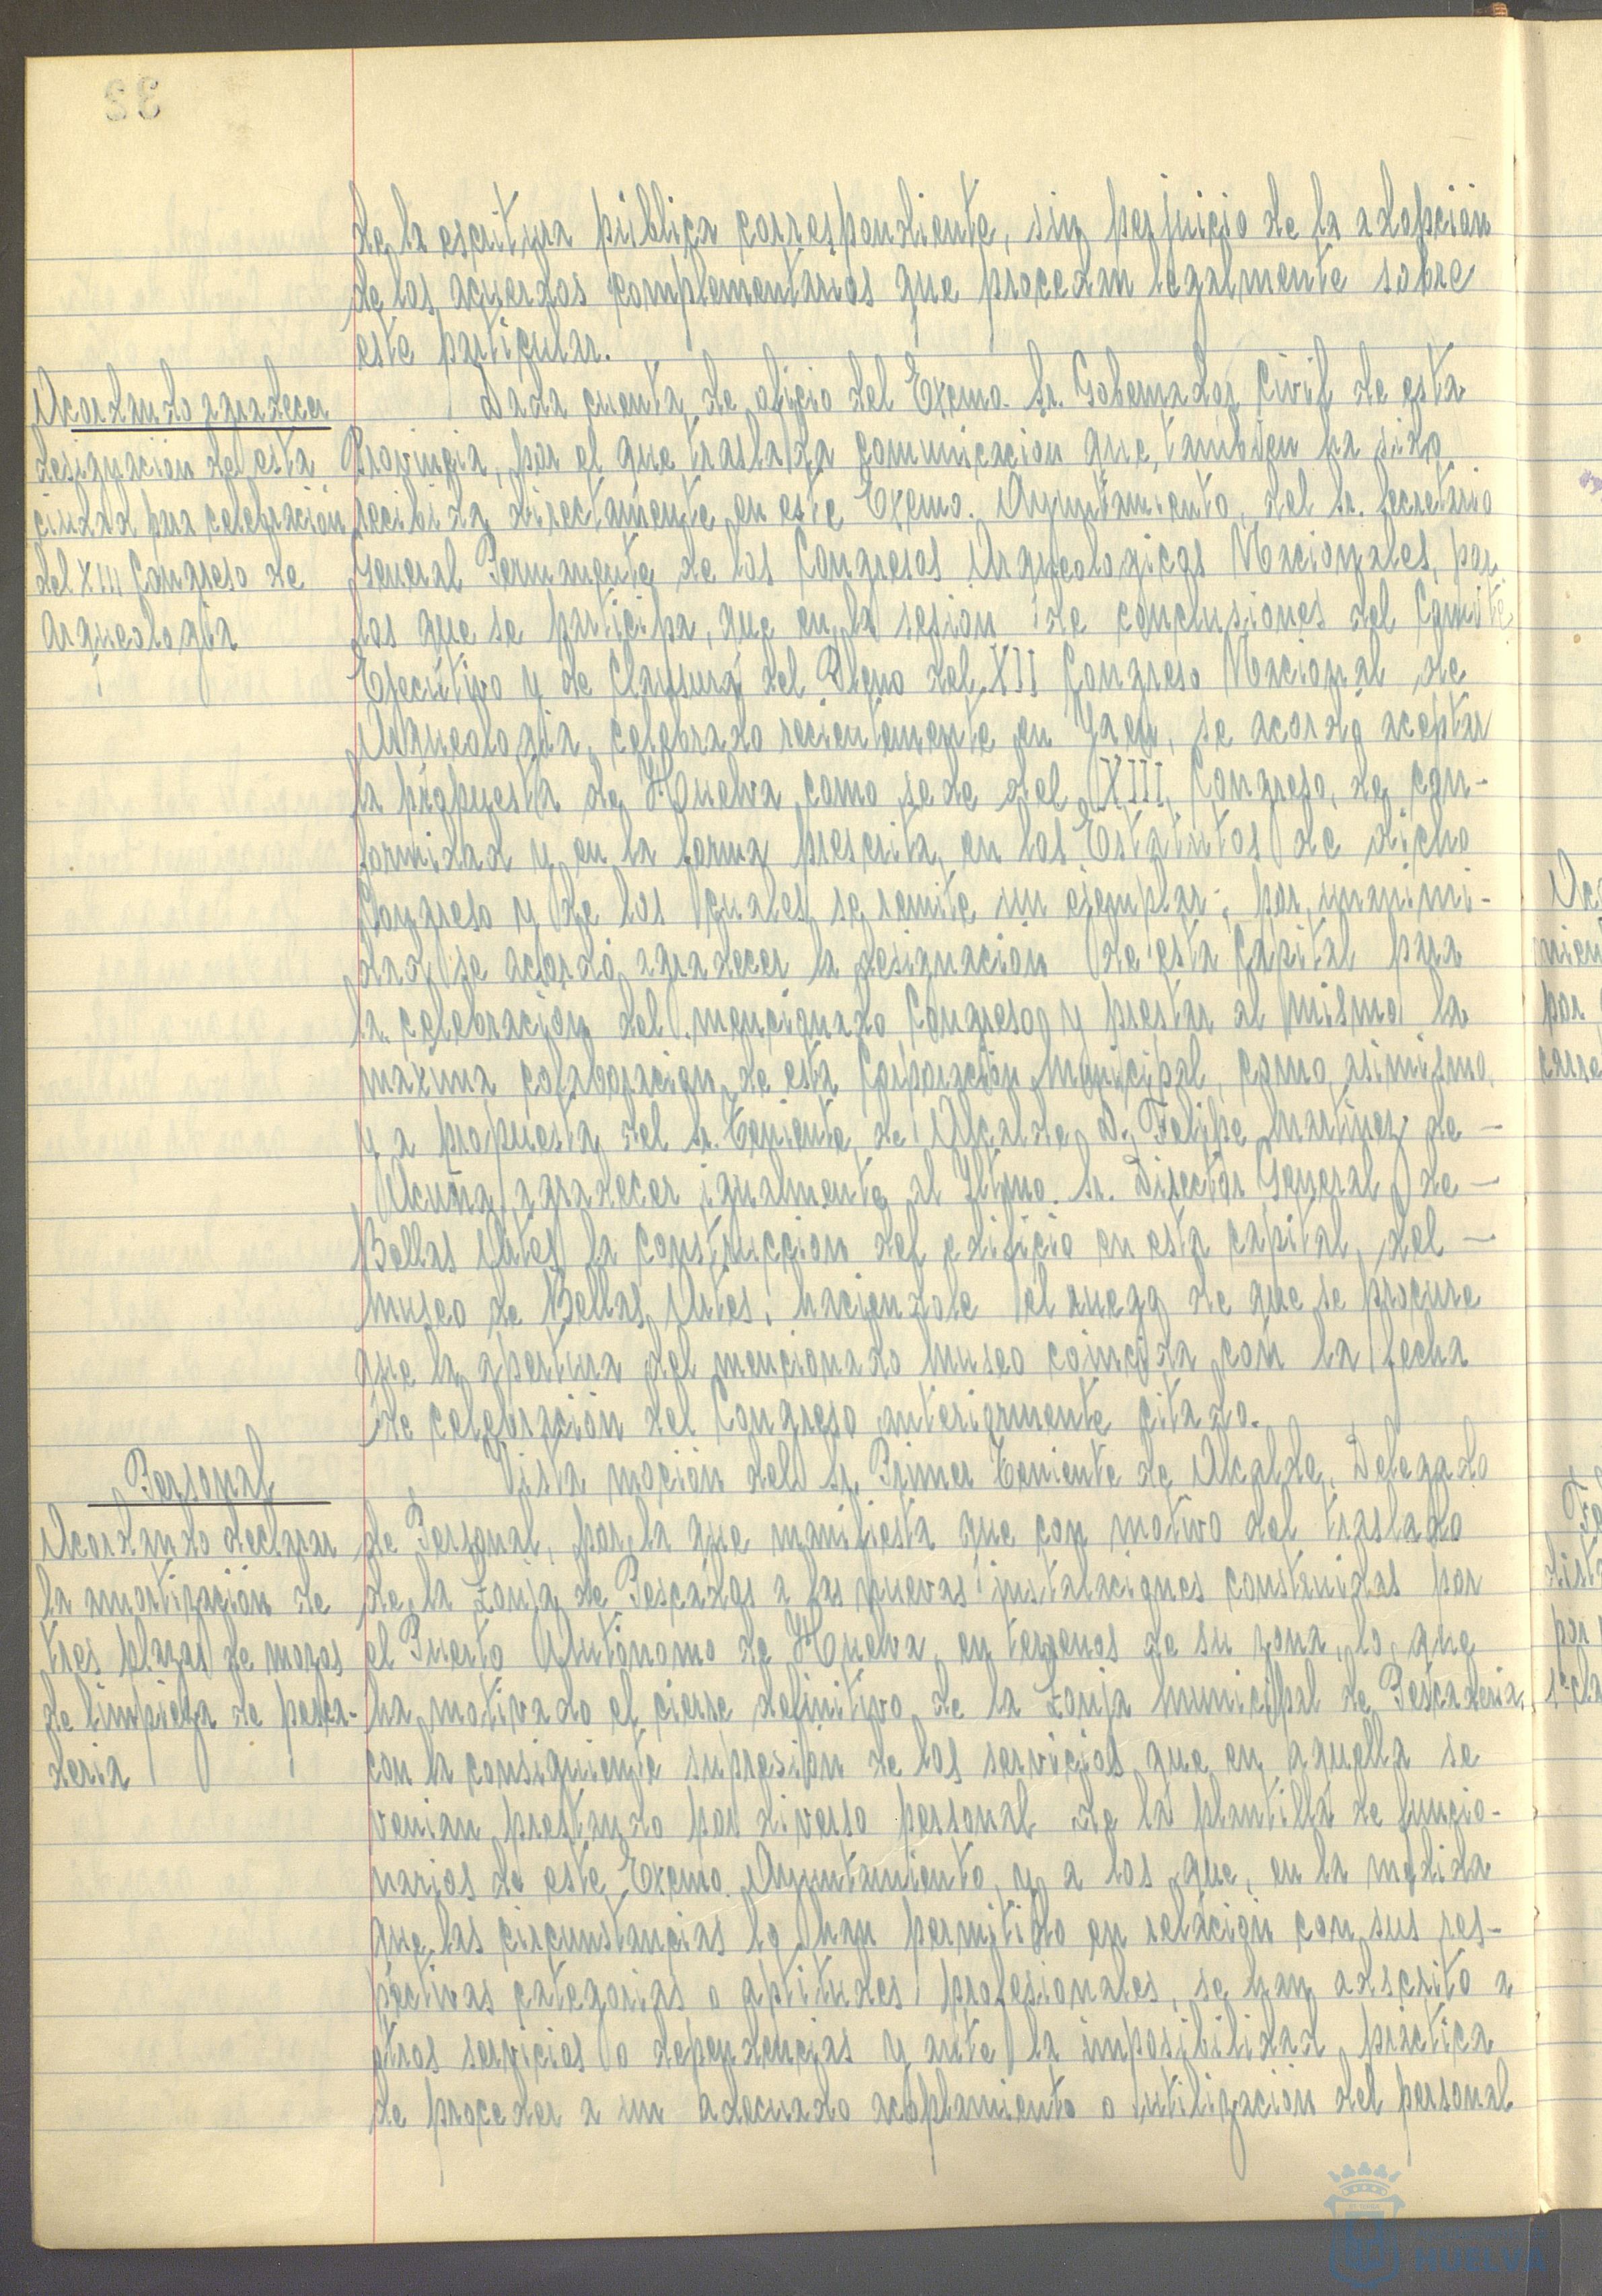 de la escritura pública correspondiente, sin perjuicio de la adopción
de los acuerdos complementarios que procedan legalmente sobre
este particular.
Acordando agradecer
designación de esta
ciudad para celebración
del XIII Congreso de
Arqueología
Dada cuenta de oficio del Excmo. Sr. Gobernador Civil de esta
Provincia, por el que traslada comunicación que, también ha sido
recibida directamente en este Excmo. Ayuntamiento, del Sr. Secretario
General Permanente de los Congresos Arqueologicos Nacionales, por
los que se participa, que en la sesión de conclusiones del Comité
Ejecutivo y de Clausura del Pleno del XII Congreso Nacional de
Arqueología, celebrado recientemente en Jaen, se acordó aceptar
la propuesta de Huelva como sede del XIII Congreso, de con-
formidad y en la forma prescrita en los Estatutos de dicho
Congreso y de los cuales se remite un ejemplar; por unanimi-
dad se acordó agradecer la designación de esta Capital para
la celebración del mencionado Congreso y prestar al mismo la
máxima colaboración de esta Corporación Municipal, como asimismo,
y a propuesta del Sr. Teniente de Alcalde D. Felipe Martinez de-
Acuña, agradecer igualmente al Iltmo. Sr. Director General de-
Bellas Artes la construcción del edificio en esta capital, del-
Museo de Bellas Artes, haciendole el ruego de que se procure
que la apertura del mencionado Museo coincida con la fecha
de celebración del Congreso anteriormente citado.
Personal
Acordando declarar
la amortización de
tres plazas de mozos
de limpieza de pesca-
deria
Vista moción del Sr. Primer Teniente de Alcalde, Delegado
de Personal, por la que manifiesta que con motivo del traslado
de la Lonja de Pescados a las nuevas instalaciones construidas por
el Puerto Autónomo de Huelva, en terrenos de su zona, lo que
ha motivado el cierre definitivo de la Lonja Municipal de Pescaderia,
con la consiguiente supresión de los servicios que en aquella se
venian prestando por diverso personal de la plantilla de funcio-
narios de este Excmo. Ayuntamiento, y a los que, en la medida
que las circunstancias lo han permitido en relación con sus res-
pectivas categorias o aptitudes profesionales, se han adscrito a
otros servicios o dependencias y ante la imposibilidad práctica
de proceder a un adecuado acoplamiento o utilización del personal
HUELVA